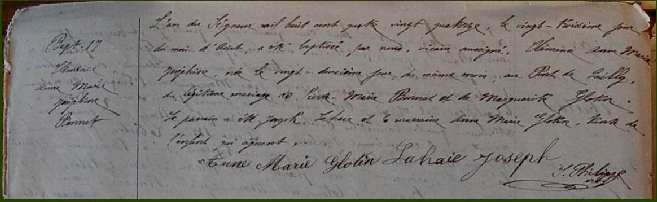 Bapt. 17
Anne Marie
Joséphine
L'an du Seigneur mil huit cent quatre vingt quatorze, le vingt-troisième jour
du mois d'Août, a été baptisée par nous, vicaire soussigné, Anne Marie
Joséphine née le vingt-deuxième jour du même mois, au
du légitime mariage de Pierre Marie et de Marguerite Glotin.
Le parrain a été Joseph Lahaie et la marraine Anne Marie Glotin, tante de
l'enfant qui signent.
Anne Marie Glotin Lahaie Joseph